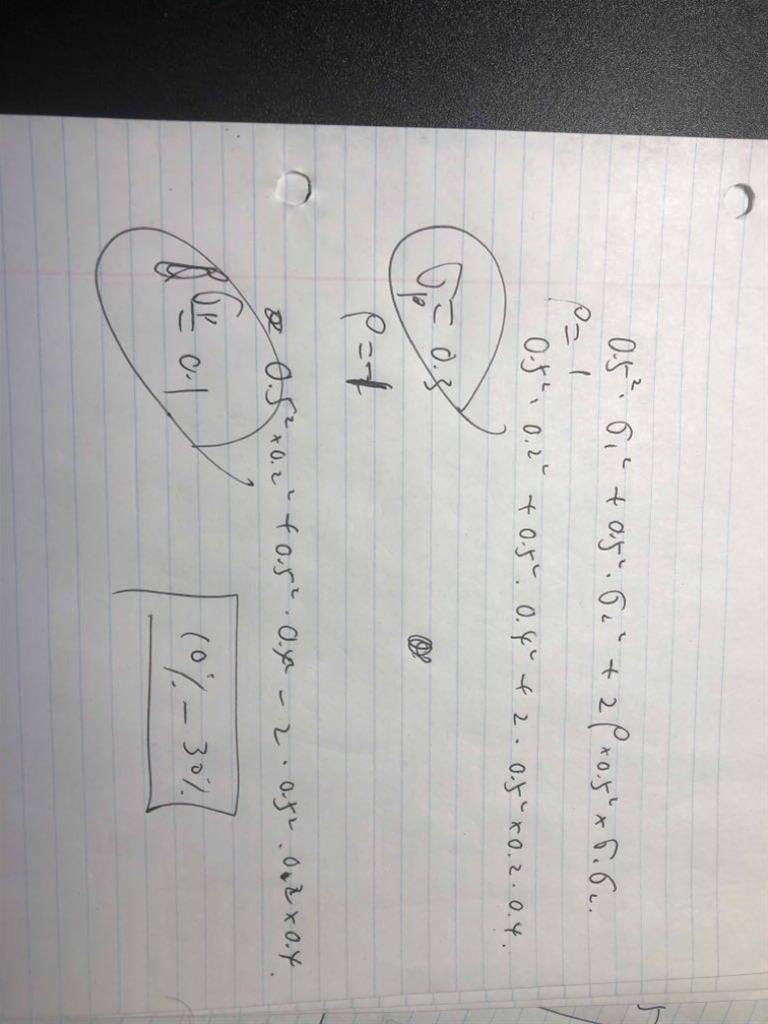 0.5²·σ₁² + 0.5²·σ₂² + 2ρ×0.5²×σ₁σ₂.
ρ=1
0.5²·0.2² + 0.5²·0.4² + 2·0.5²×0.2·0.4.
σp=0.3
ρ=-1
0.5²×0.2² + 0.5²·0.4² - 2·0.5²·0.2×0.4.
σp=0.1
10%-30%